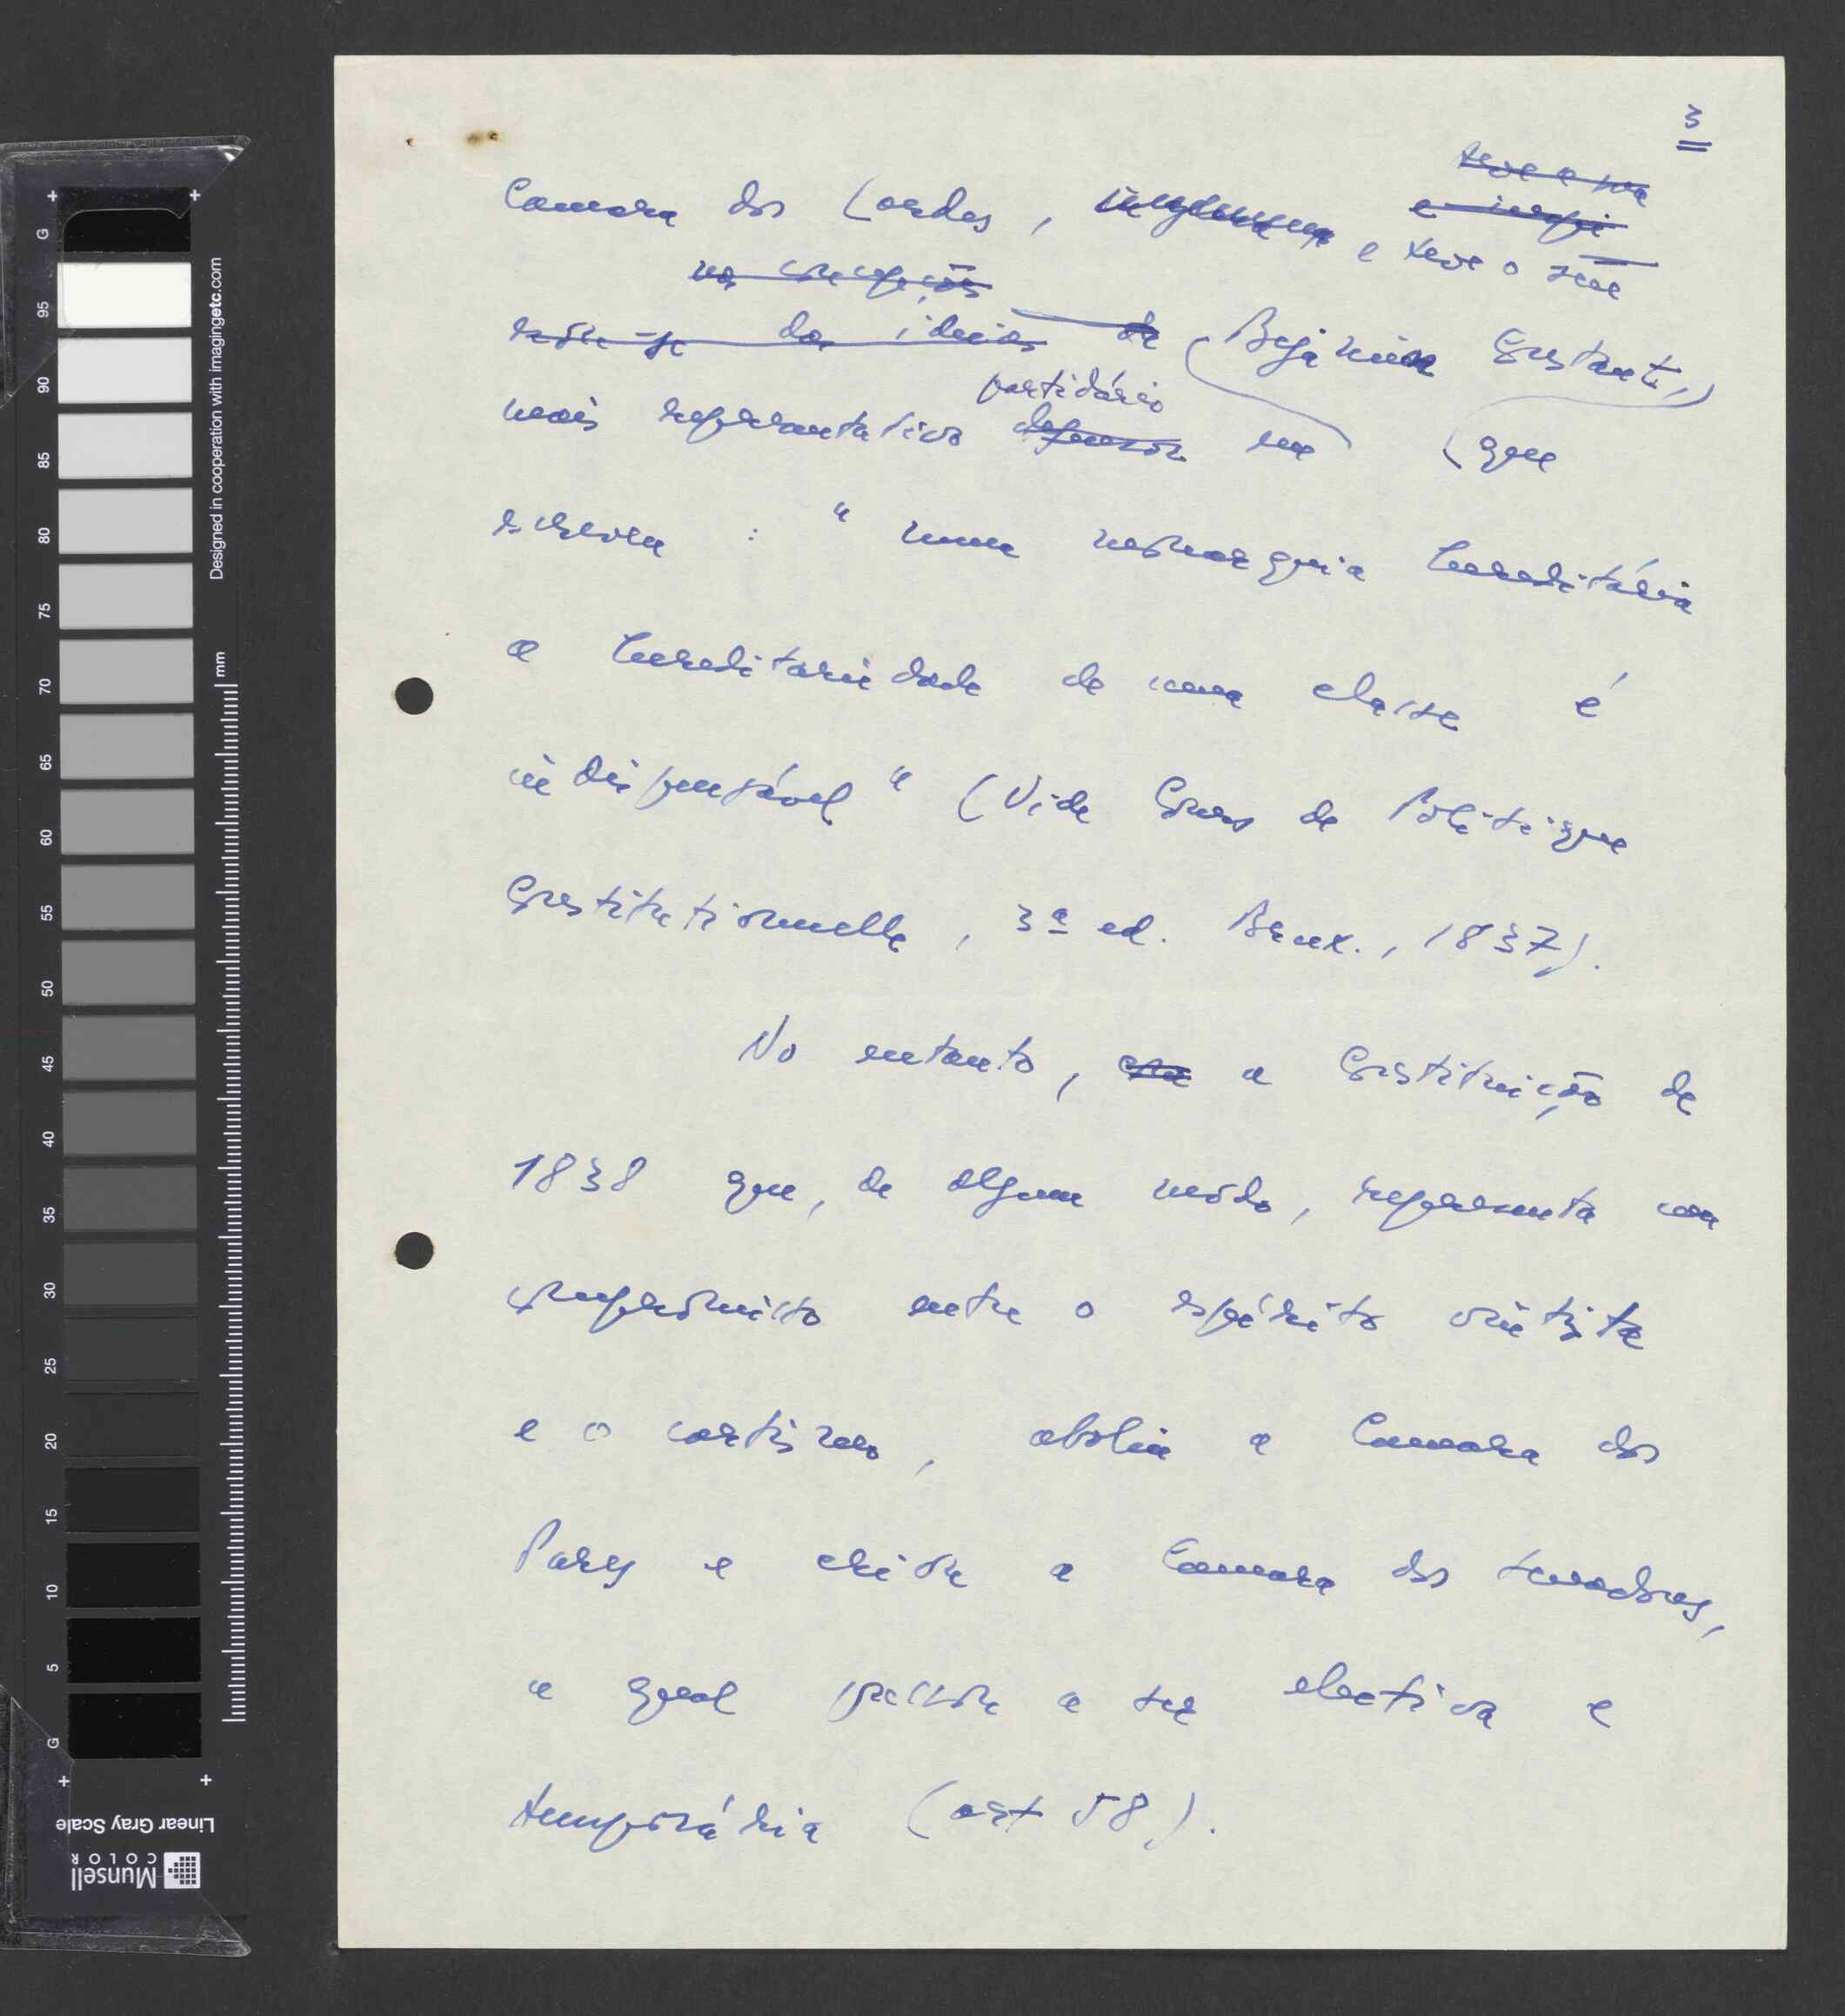 3
teve a sua
Camara dos Lordes, inglesa e inspi
e teve o seu
na concepção
rou-se das ideias de Bejamin Constant,
partidário
mais representativo defensor em (que
escrevia : " numa monarquia hereditária
a hereditariedade de uma classe é
indispensável " (Vide Cours de Politique
Constitutionnelle, 3ª ed. Brux., 1837).
No entanto, a Constituição de
1838 que, de algum modo, representa um
compromisso entre o espírito vintista
e o cartismo, aboliu a Camara dos
Pares e criou a Camara dos senadores,
a qual passou a ser electiva e
temporária (art 58).
Designed in cooperation with imagingetc.com
mm
G
95
90
85
80
75
70
65
60
55
50
45
40
35
30
25
20
15
10
5
G
Linear Gray Scale
Munsell
COLOR